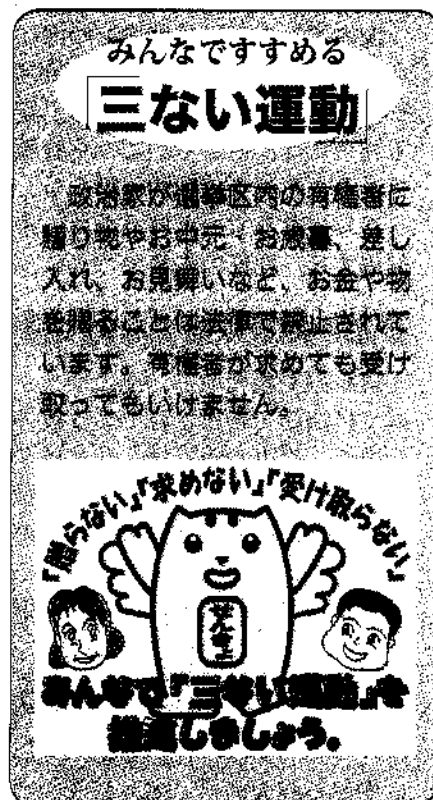 みんなですすめる
三ない運動
政治家が選挙区内の有権者に
贈り物やお中元・お歳暮、差し
入れ、お見舞いなど、お金や物
を贈ることは法律で禁止されて
います。有権者が求めても受け
取ってもいけません。
「贈らない」「求めない」「受け取らない」
みんなで「三ない運動」を
推進しましょう。